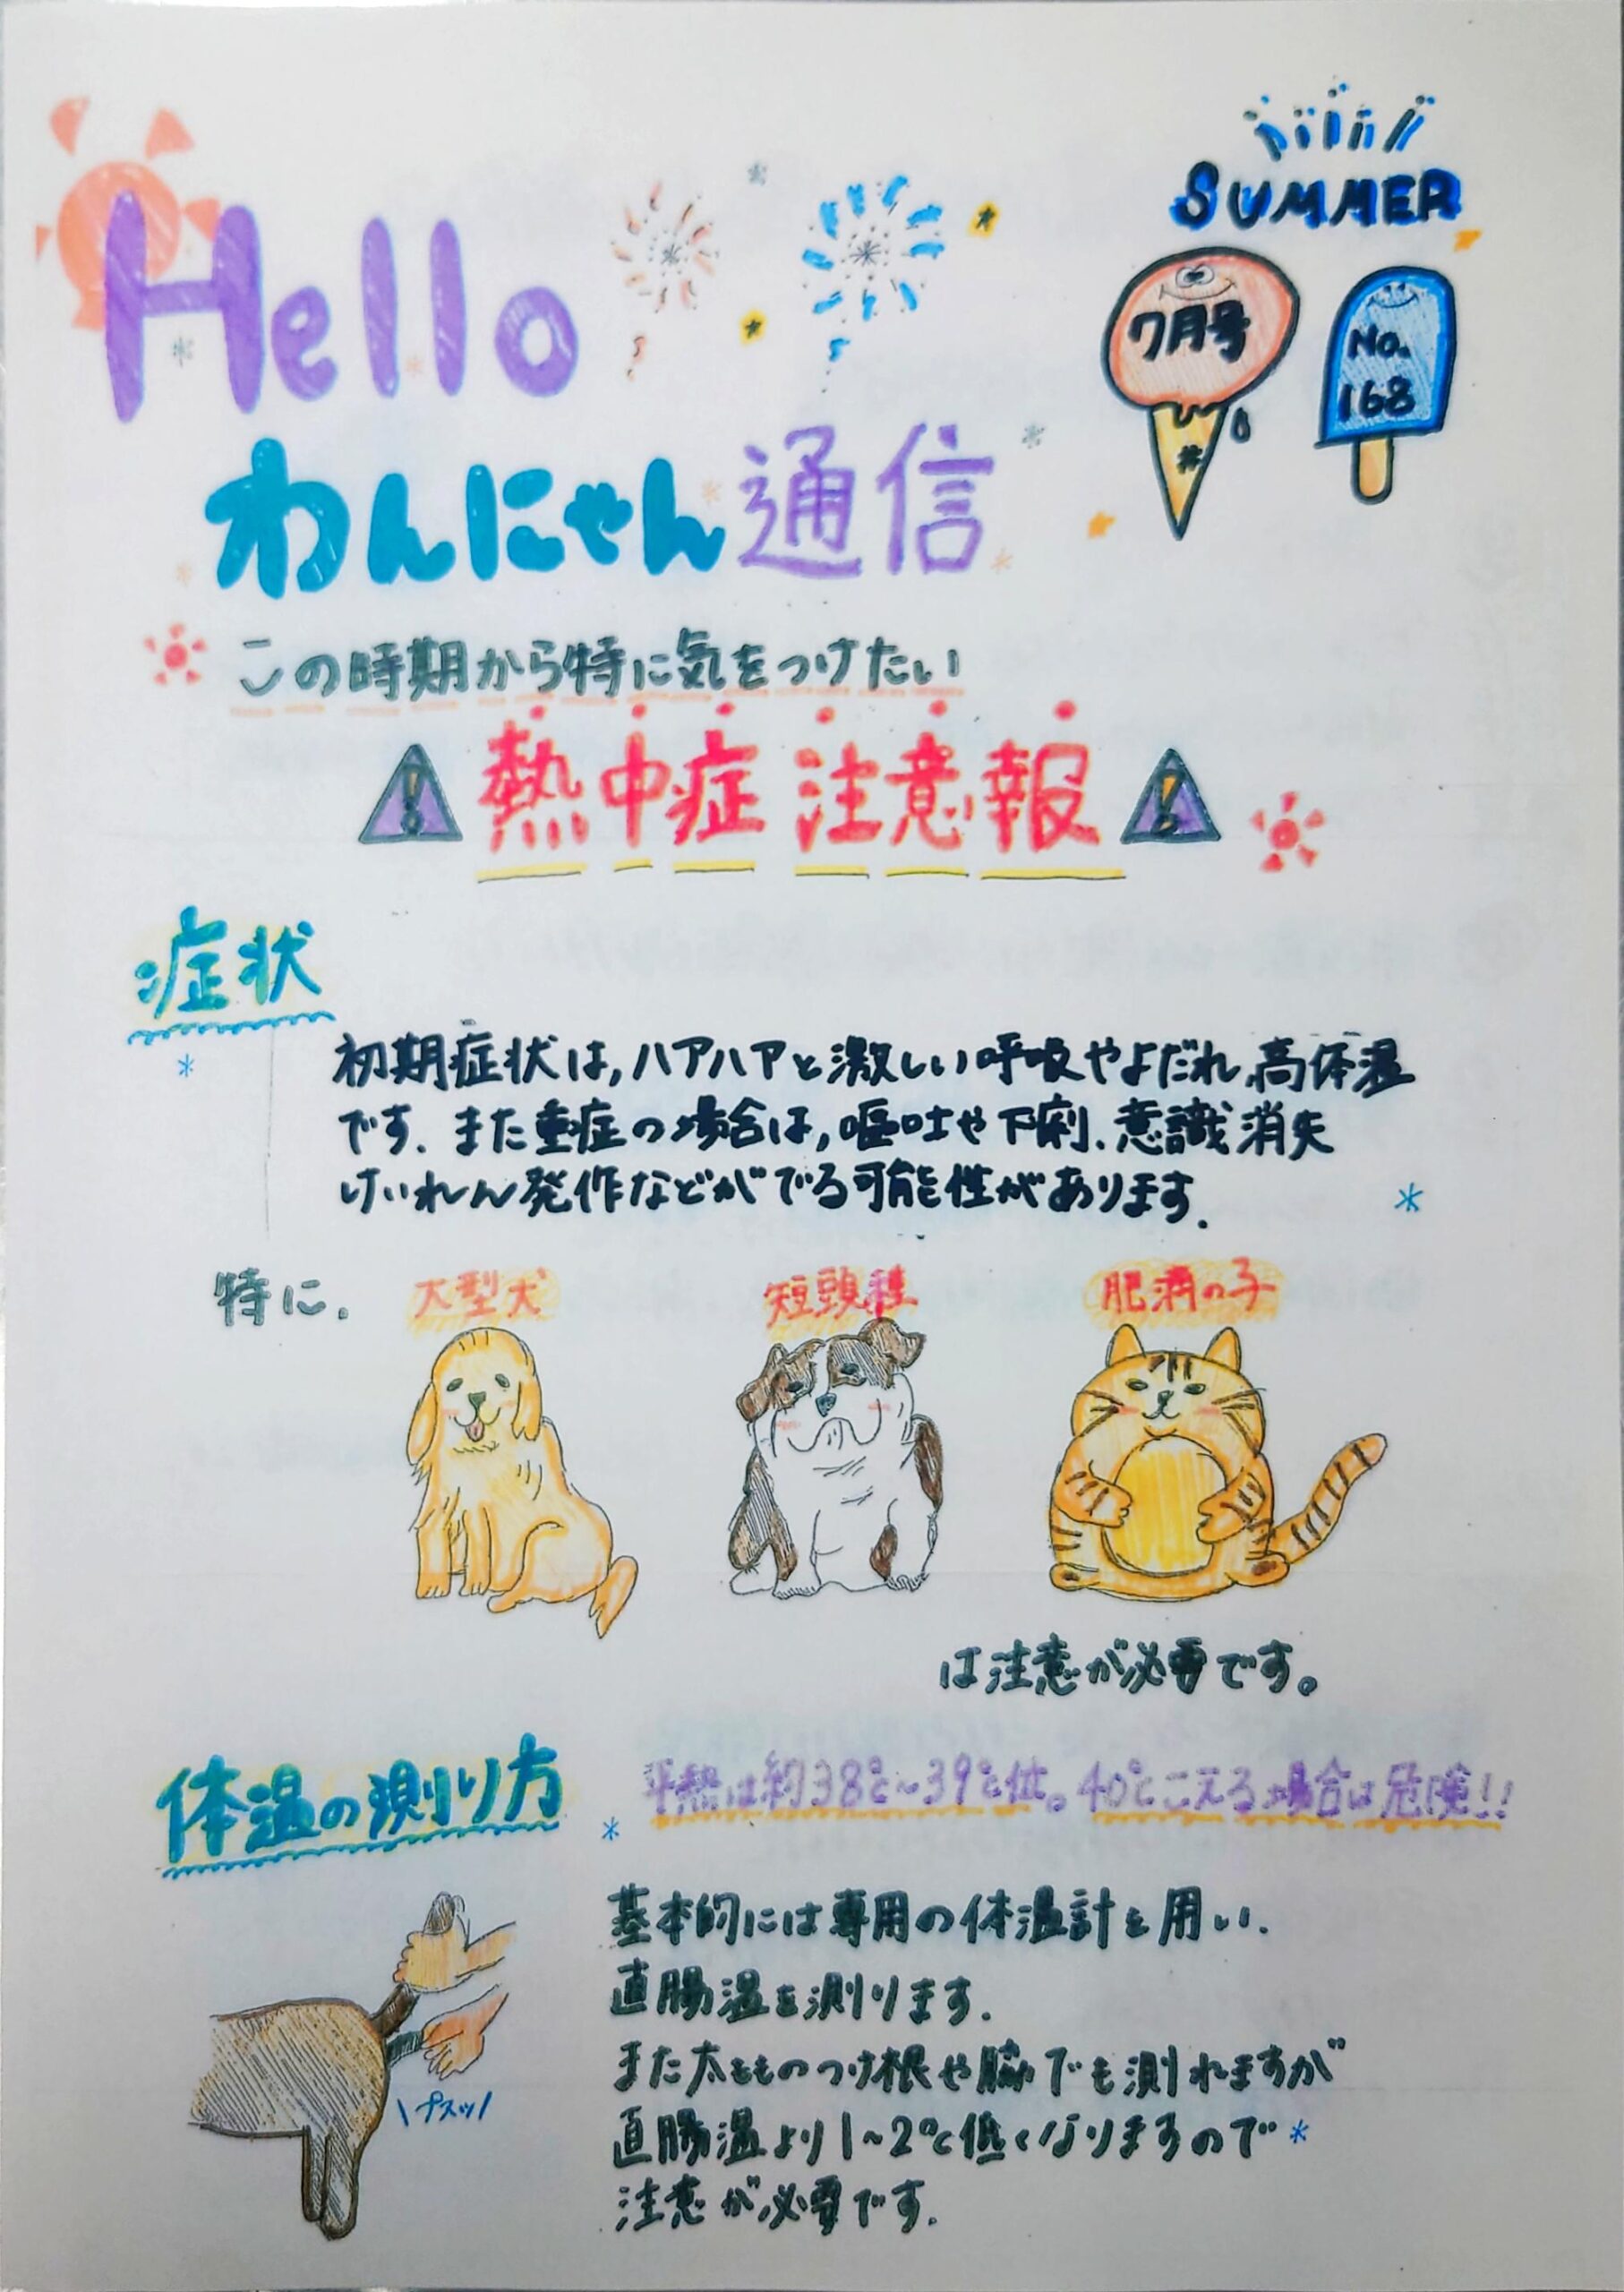 SUMMER
Hello
7月号
No.
168
わんにゃん通信
この時期から特に気をつけたい
熱中症注意報
症状
初期症状は,ハアハアと激しい呼吸やよだれ,高体温
です.また重症の場合は,嘔吐や下痢、意識消失
けいれん発作などがでる可能性があります.
特に. 大型犬 短頭種 肥満の子
は注意が必要です。
体温の測り方
平熱は約38℃〜39℃位。40℃こえる場合は危険!!
基本的には専用の体温計を用い.
直腸温を測ります.
また太もものつけ根や脇でも測れますが
直腸温より1〜2℃低くなりますので
注意が必要です.
\プスッ/